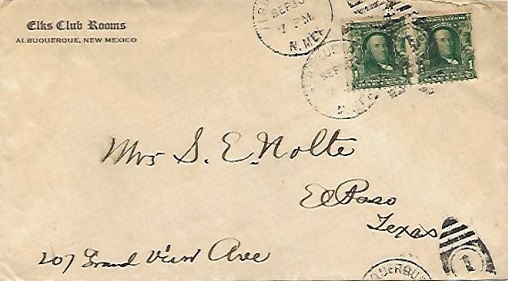 Elks Club Rooms
ALBUQUERQUE, NEW MEXICO
SEP 30
7 PM
N. MEX
SEP
Mrs S. E. Nolte
El Paso
Texas
207 Grand View Ave
QUERQU
1